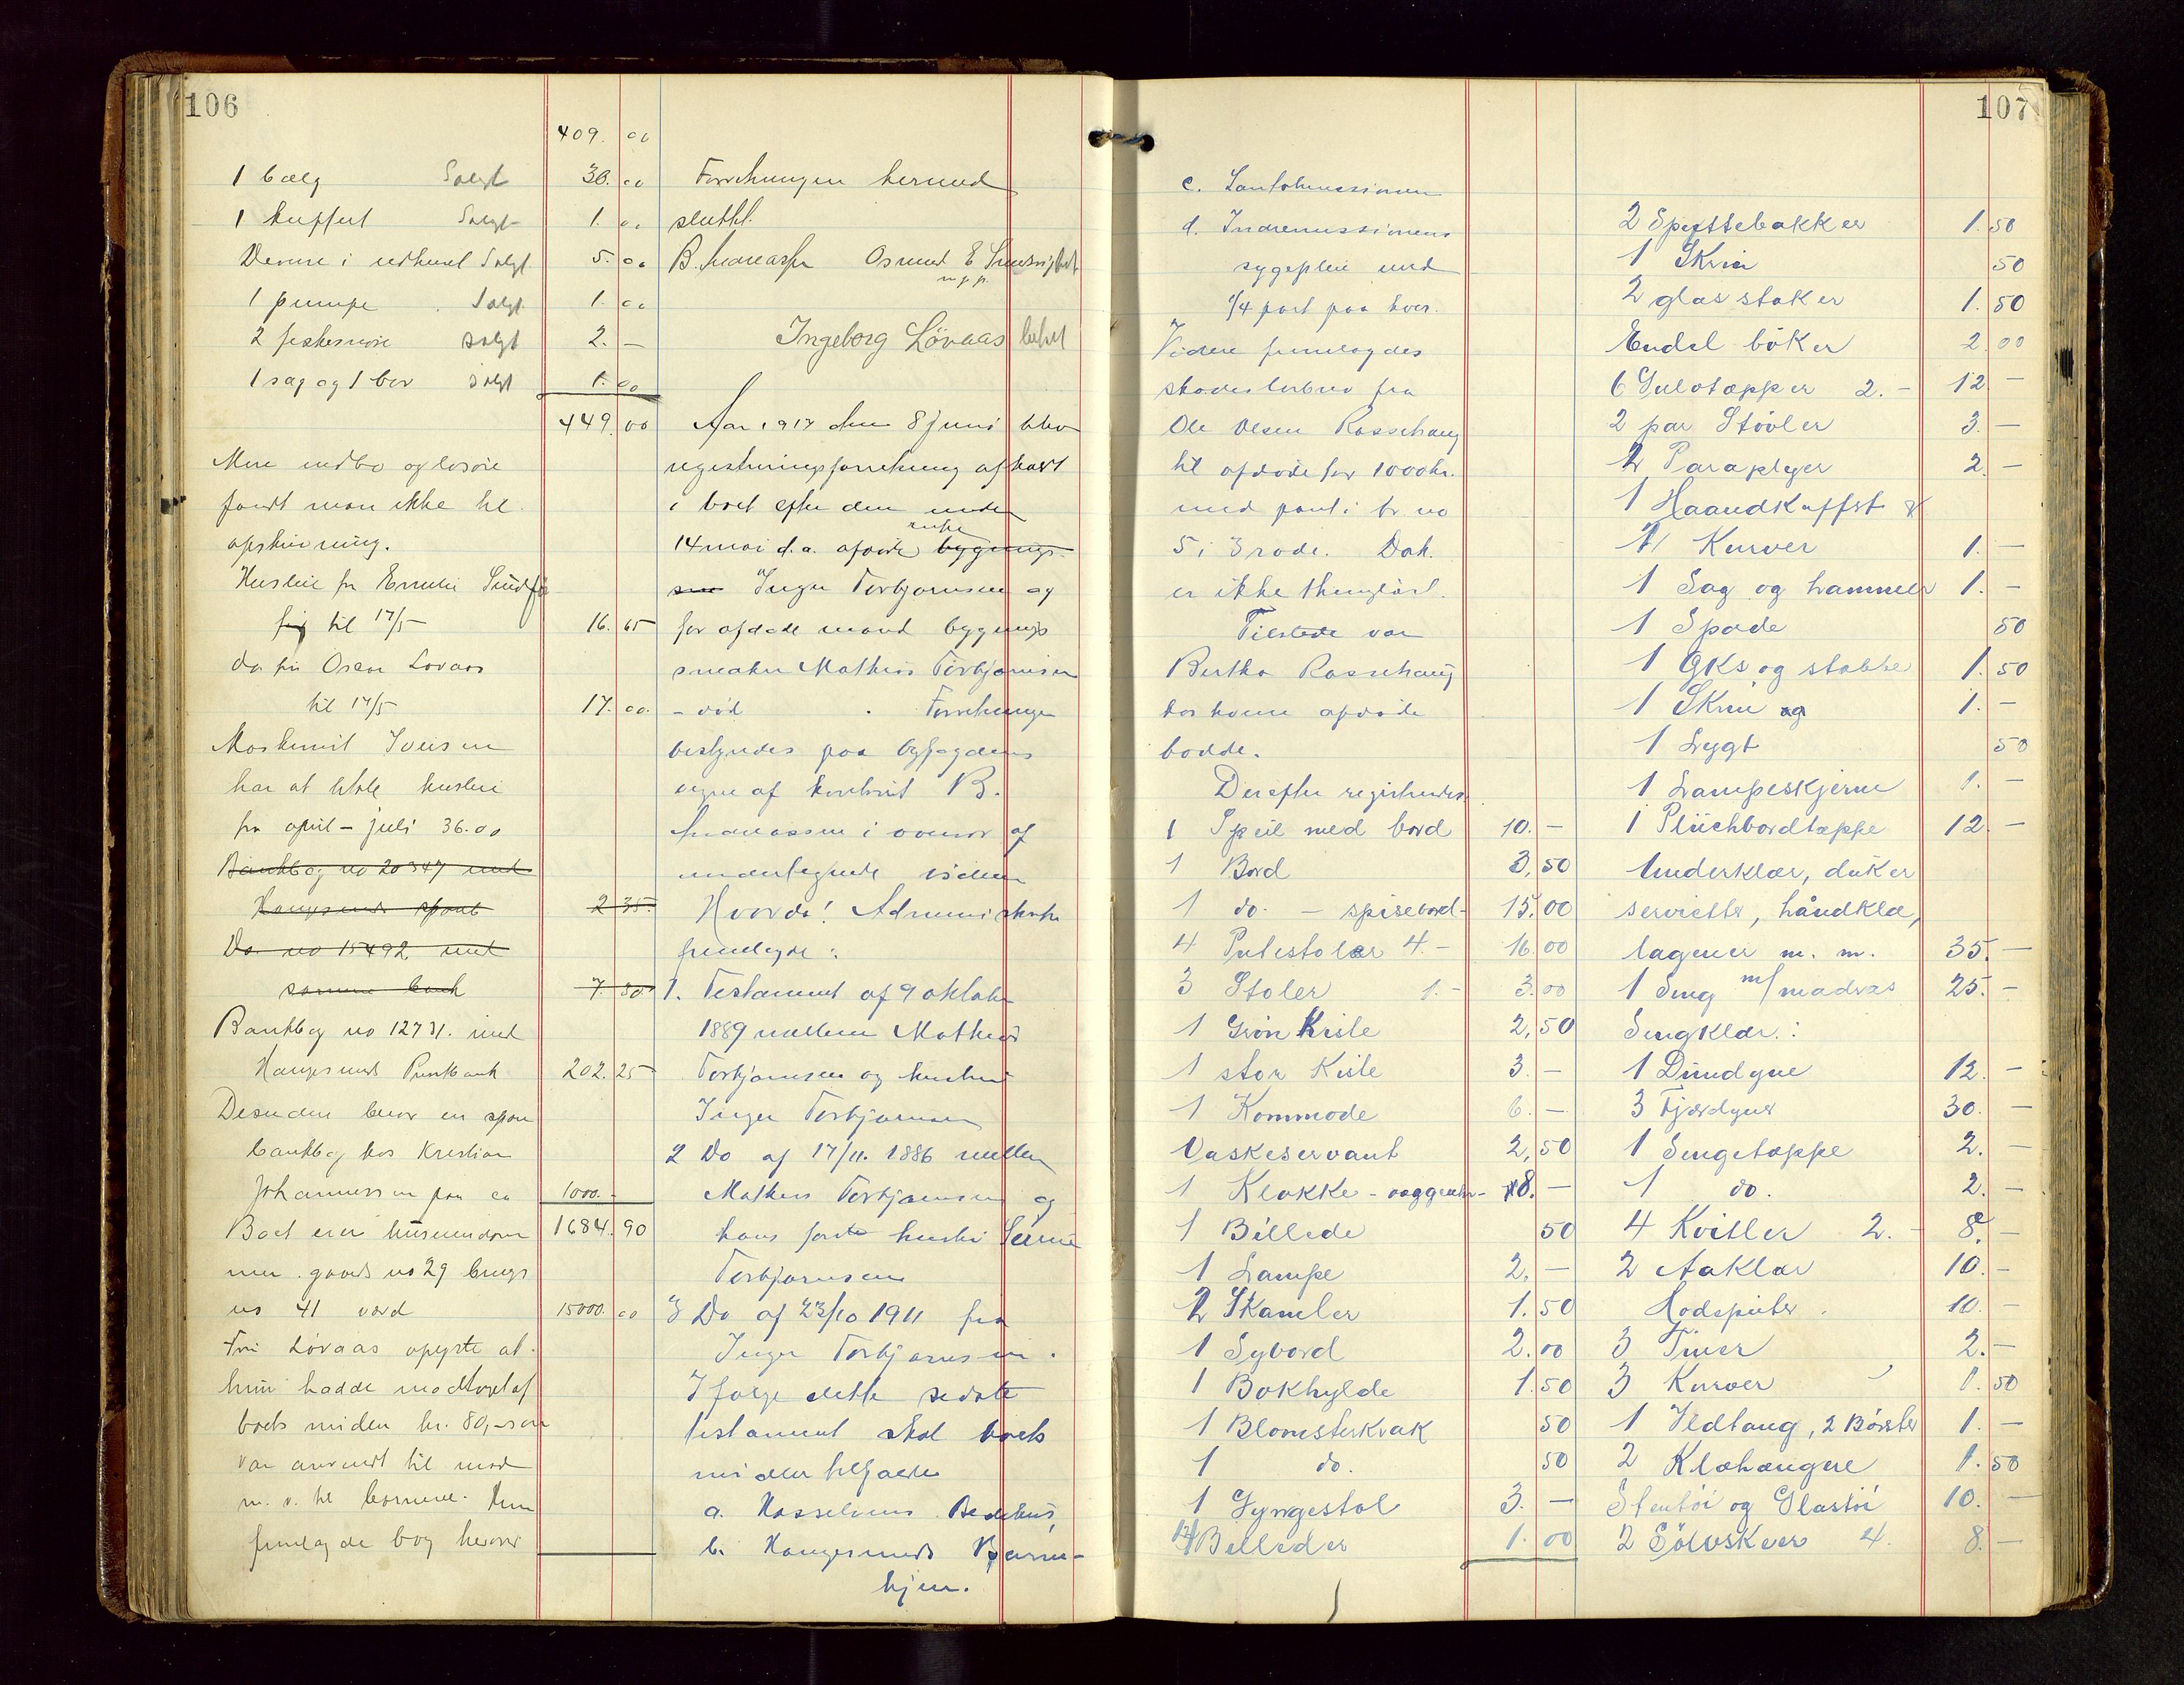 106
409. 00
1 bælg Solgt 30. 00
1 kuffert Solgt 1. 00
Diverse i redhuset Solgt 5. 00
1 pumpe Solgt 1. 00
2 fiskesnøre solgt 2. —
1 sag og 1 bor solgt 1. 00
449. 00
Mere indbo og løsøre
fandt man ikke til
opskrivning.
Husleie fra Emilie
til 17/5 16. 65
do fra Oscar Lovaas
til 17/5 17. 00
Maskinist Iversen
har at betale husleie
fra april - juli 36.00
Bankbog no 20347 med
Haugesunds sparb 2 35
Do no 15492 med
samme bank 7. 50
Bankbog no 12731. med
Haugesunds Privatbank 202. 25
Desuden beror en spare
bankbog hos Kristian
Johannessen paa ca 1000. -
Boet eier huseiendom 1684. 90
men gaards no 29 brugs
no 41 værd 15000. 00
Fru Løvaas oplyste at
hun hadde modtaget af
boets midler kr. 80,- som
var anvendt til mad
m. v. til børnene. Hun
fremlagde bog herover
Forretningen hermed
sluttet.
B. Andreassen Osmund E
m. p. p.
Ingeborg Lövaas
Aar 1917 den 8 juni blev
registreringsforretning afholdt
i boet efter den under
enke
14 mai d.a. afdøde bygnings-
Inger Torbjørnsen og
før afdøde mand bygnings
snekker Mathias Torbjørnsen
- død. Forretningen
bestyredes paa Byfogdens
vegne af kontorist B.
Andreassen i overvær af
undertegnede vidner
Hvorda! Administrator
fremlagde:
1. Testament af 9 oktober
1889 mellem Mathias
Torbjørnsen og hustru
Inger Torbjørnsen
2 Do af 17/11. 1886 mellem
Mathias Torbjørnsen og
hans første hustru
Torbjørnsen
3 Do af 23/10 1911 fra
Inger Torbjørnsen.
I følge dette sidste
testament skal boets
midler tilfalde
a. Hasseløens Bedehus,
b. Haugesunds Barne-
hjem.
107
c. Santalmissionen
d. Indremissionens
sygepleie med
1/4 part paa hver.
Videre fremlagdes
skadesløsbrev fra
Ole Olsen Rossehaug
til afdøde for 1000 kr.
med pant i br no
5 i 3 rode. Dok.
er ikke thinglæst.
Tilstede var
Bertha Rossehaug
hos hvem afdøde
bodde.
Derefter registreredes
1 Speil med bord 10. —
1 Bord 3, 50
1 do. - spisebord - 15. 00
4 Putestoler 4. - 16 00
3 Stoler 1. - 3. 00
1 Grön Kiste 2, 50
1 stor Kiste 3. —
1 Kommode 6. —
Vaskeservant 2, 50
1 Klokke - væggeuhr - 8. —
1 Billede 50
1 Lampe 2, —
2 Skamler 1. 50
1 Sybord 2. 00
1 Bokhylde 1. 50
1 Blomsterkrak 50
1 do. 50
1 Gyngestol 3. —
14 Billeder 1. 00
2 Spyttebakker 1. 50
1 Skrin 50
2 glas staker 1. 50
Endel böker 2. 00
6 Gulvtæpper 2. - 12 —
2 par Stövler 3. —
2 Paraplyer 2. —
1 Haandkuffert &
1 Kurver 1. —
1 Sag og hammer 1. -
1 Spade 50
1 Øks og stabbe 1. 50
1 Skrin og 1. -
1 Lygt 50
1 Lampeskjerm 1. -
1 Plüchbordtæppe 12 —
Underklær, duker
servietter, håndklæ,
lagener m. m. 35. —
1 Seng m/ madras 25. —
Sengklær.:
1 Dundyne 12. —
3 Fjærdyner 30. —
1 Sengetæppe 2. —
1 do. 2. —
4 Kvilter 2. - 8. —
2 Aaklær 10. —
Hodeputer. 10. —
3 Tiner 2. —
3 Kurver 1. 50
1 Ildtang, 2 Børster 1. —
2 Klæhængere 1. 50
Stentöi og Glastöi 10. —
2 Sölvskeer 4. 8. —